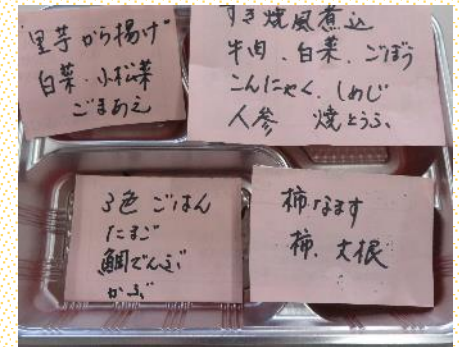 "里芋から揚げ"
白菜・小松菜
ごまあえ
すき焼風煮込
牛肉、白菜、ごぼう
こんにゃく、しめじ
人参 焼とうふ
3色ごはん
たまご
鯛でんぶ
かぶ
柿なます
柿、大根